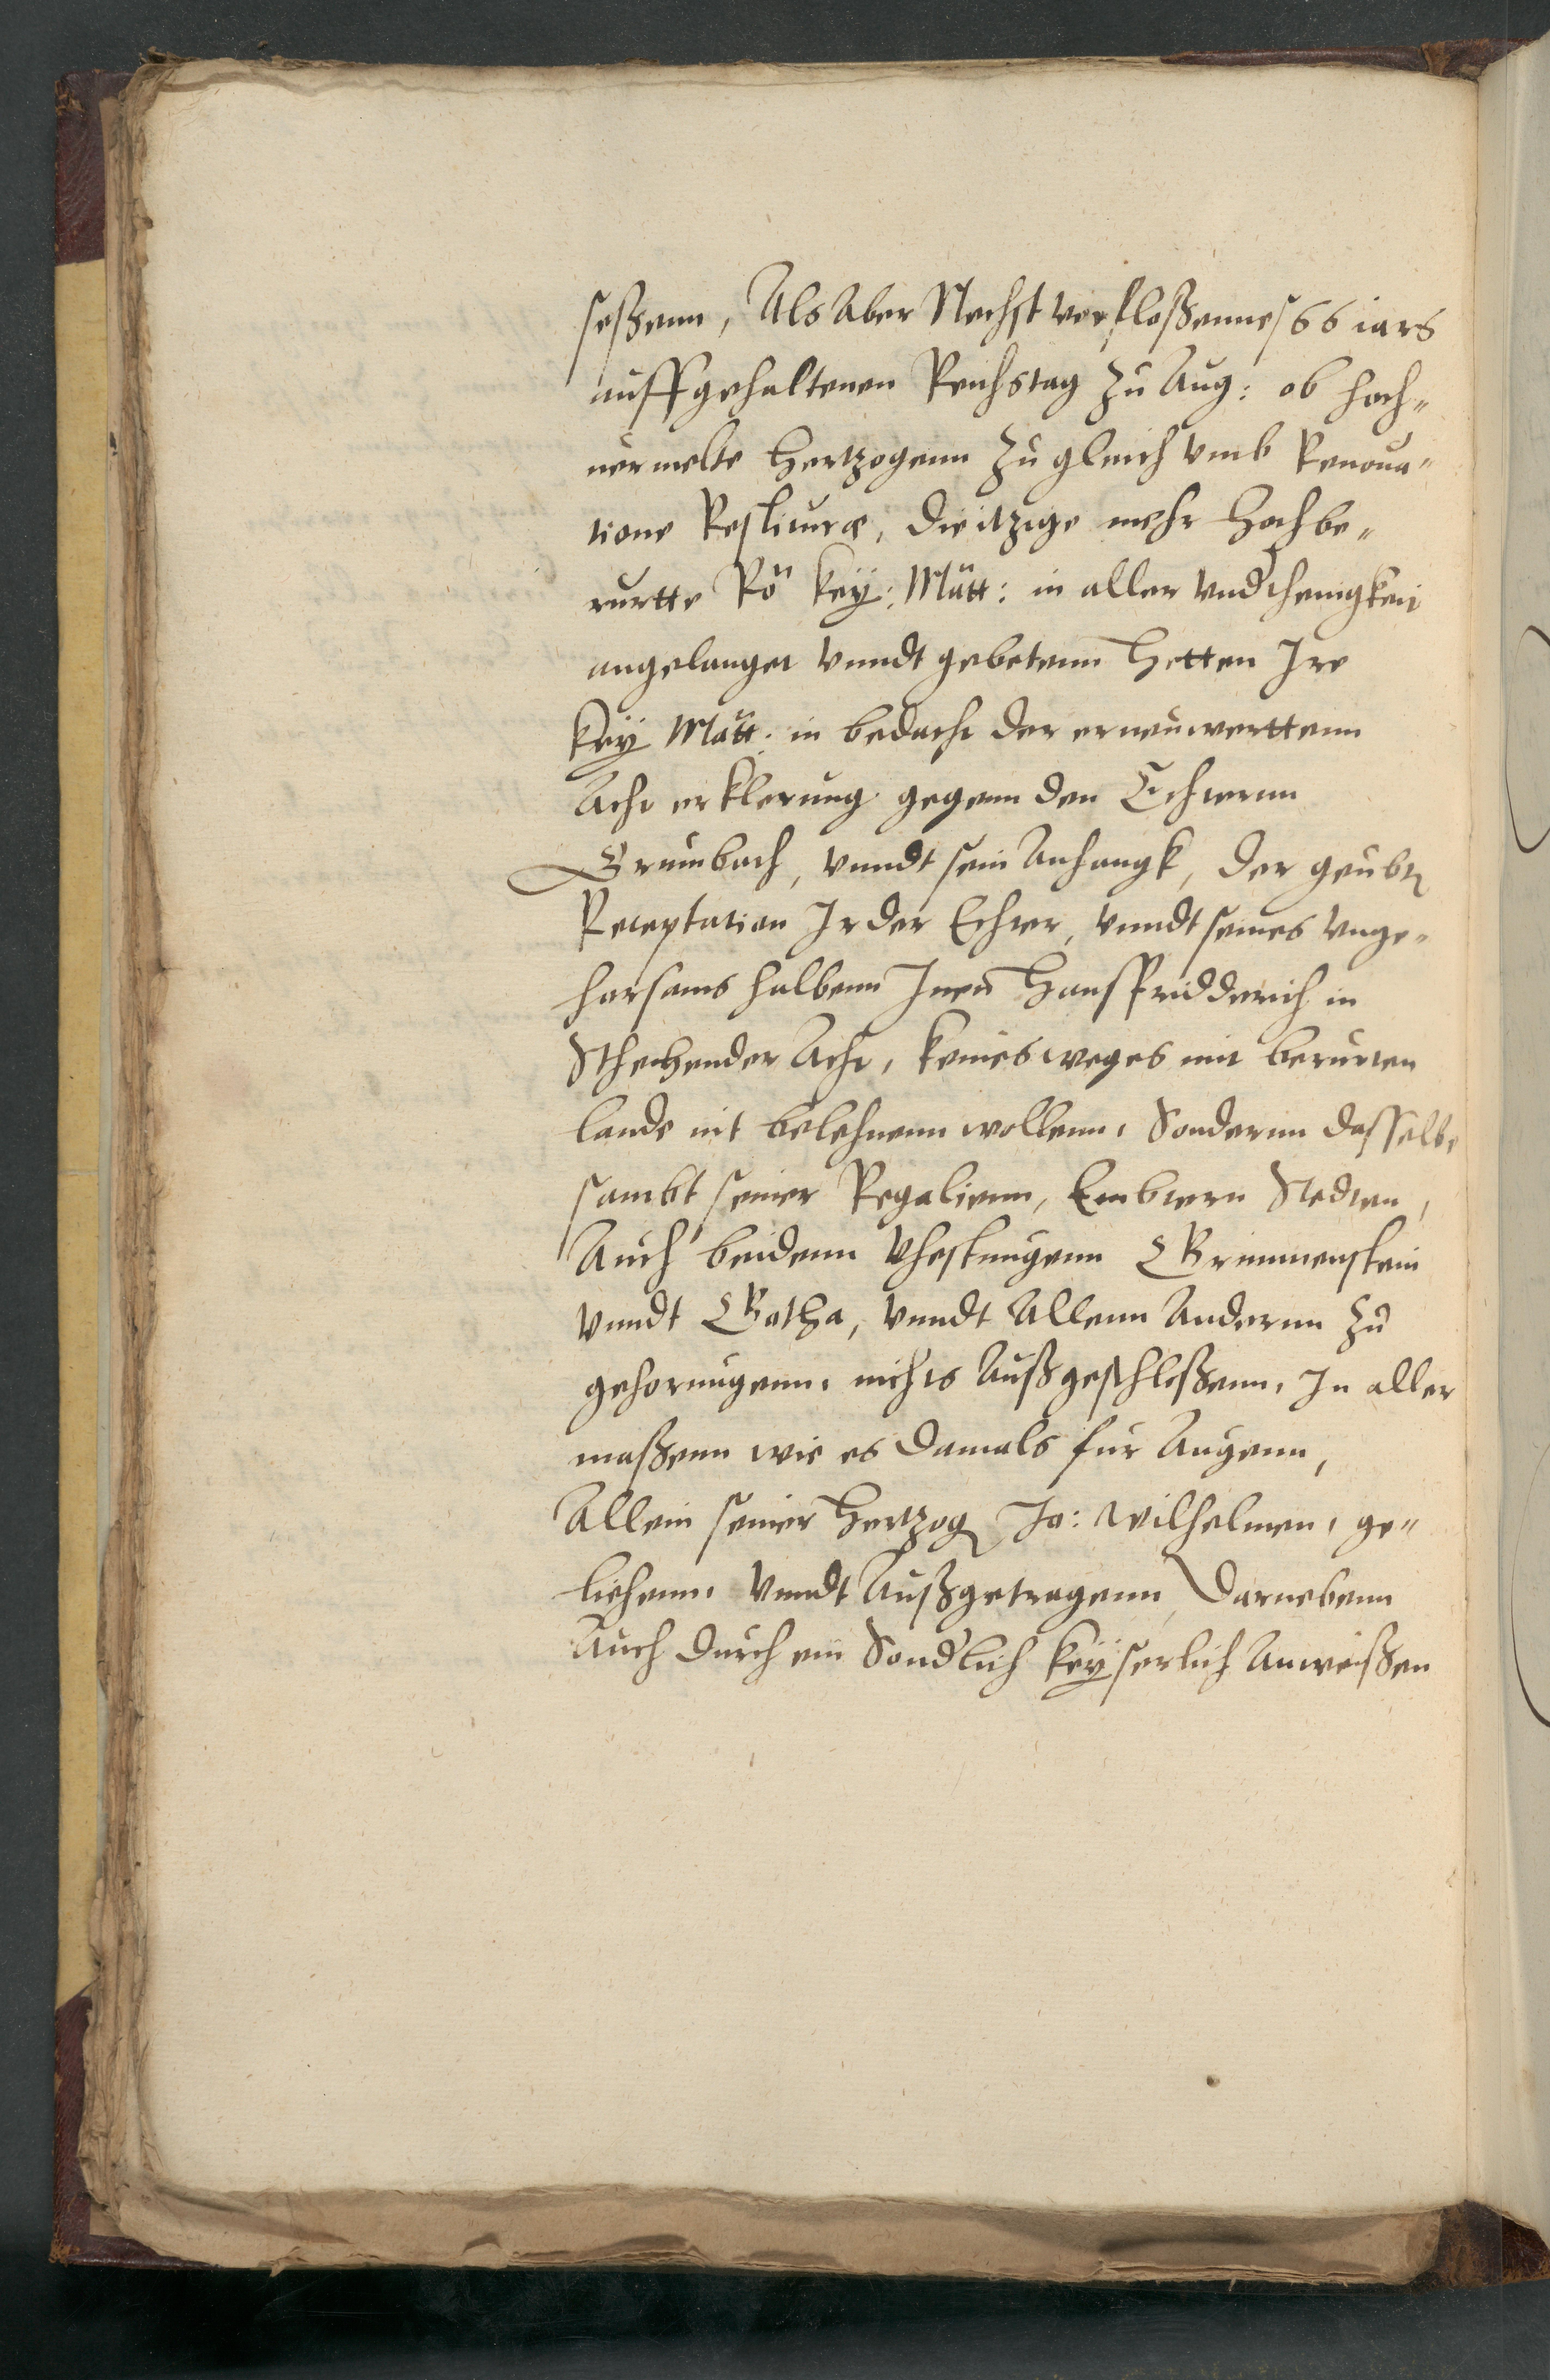 seßenn, Als Aber Nechst verfloßennes 66 iars
auff gehaltenen Reichstag zu Aug: ob hoch„
uermelte Hertzogenn zu gleich vmb Renoua„
tione                , die itzige mehr Hochbe„
rurtte Rö Key: Mätt: in aller vnd'thenigkeit
angelanget vnndt gebetenn Hetten Ire
Key Mätt: in bedacht der ernëuwerttenn
Acht erklerung gegenn den Echternn
Grumbach, vnndt sein Anhangk, der geubt
Receptation Ir der Echter, vnndt seines vnge„
horsams halbenn Inen Hanß Fridderich in
Stehender Acht, keines weges mit berurten
lande nit belehnenn wollenn, Sondernn dasselbe
sambt seiner Regalienn, Embtern Stedten,
Auch beidenn Vhestungenn Grimmenstein
vnndt Gotha, vnndt Allenn Andernn zu
gehorungenn, nichts Außgeschloßenn, In aller
maßenn wie es damals fur Augenn,
Allein seiner Hertzog Jo: Wilhelmen, ge„
liehenn, vnndt Außgetragenn, Darnebenn
Auch durch ein Sond'lich Keyserlich Anweißen